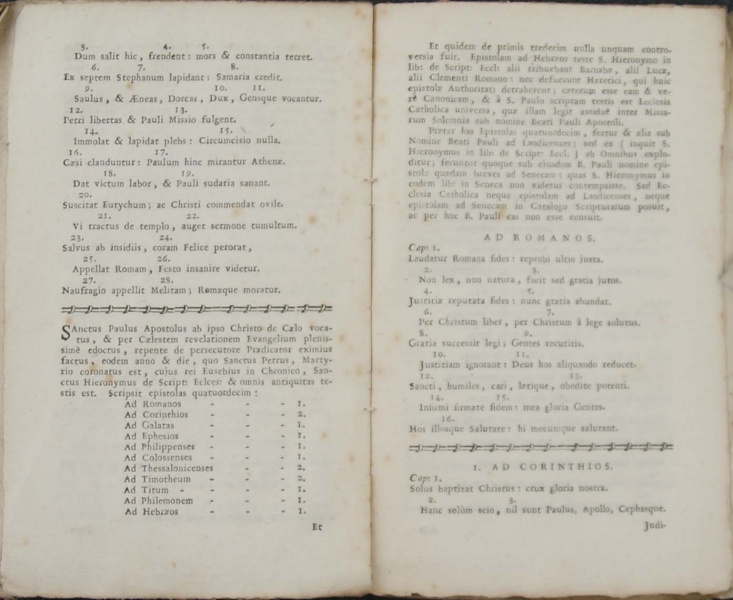 3. 4. 5.
Dum salit hic, frendent: mors & constantia terret.
6. 7. 8.
Ex septem Stephanum lapidant: Samaria credit.
9. 10. 11.
Saulus, & Æneas, Dorcas, Dux, Gensque vocantur.
12. 13.
Petri libertas & Pauli Missio fulgent.
14. 15.
Immolat & lapidat plebs: Circumcisio nulla.
16. 17.
Cæsi clauduntur: Paulum hinc mirantur Athenæ.
18. 19.
Dat victum labor, & Pauli sudaria sanant.
20.
Suscitat Eutychum; ac Christi commendat ovile.
21. 22.
Vi tractus de templo, auget sermone tumultum.
23. 24.
Salvus ab insidiis, coram Felice perorat,
25. 26.
Appellat Romam, Festo insanire videtur.
27. 28.
Naufragio appellit Melitam; Romæque moratur.
SAnctus Paulus Apostolus ab ipso Christo de Cælo voca-
tus, & per Cælestem revelationem Evangelium plenis-
simè edoctus, repente de persecutore Prædicator eximius
factus, eodem anno & die, quo Sanctus Petrus, Marty-
rio coronatus est, cujus rei Eusebius in Chronico, San-
ctus Hieronymus de Script: Eccles: & omnis antiquitas te-
stis est. Scripsit epistolas quatuordecim:
Ad Romanos - - - 1.
Ad Corinthios - - - 2.
Ad Galatas - - - 1.
Ad Ephesios - - - 1.
Ad Philippenses - - - 1.
Ad Colossenses - - - 1.
Ad Thessalonicenses - - 2.
Ad Timotheum - - - 2.
Ad Titum - - - - 1.
Ad Philemonem - - - 1.
Ad Hebræos - - - 1.
Et
Et quidem de primis tredecim nulla unquam contro-
versia fuit. Epistolam ad Hebræos teste S. Hieronymo in
lib: de Script: Eccl: alii tribuebant Barnabæ, alii Lucæ,
alii Clementi Romano: nec defuerunt Hæretici, qui huic
epistolæ Authoritati detraherent; cæterum esse eam & ve-
rè Canonicam, & à S. Paulo scriptam testis est Ecclesia
Catholica universa, quæ illam legit assiduè inter Missa-
rum Solemnia sub nomine Beati Pauli Apostoli.
Præter has Epistolas quatuordecim, fertur & alia sub
Nomine Beati Pauli ad Laodicenses; sed ea ( inquit S.
Hieronymus in lib: de Script: Eccl: ) ab Omnibus explo-
ditur; feruntur quoque sub ejusdem B. Pauli nomine epi-
stolæ quædam breves ad Senecam: quas S. Hieronymus in
eodem lib: in Seneca non videtur contempsisse. Sed Ec-
clesia Catholica neque epistolam ad Laodicenses, neque
epistolam ad Senecam in Catalogo Scripturarum posuit,
ac per hoc B. Pauli eas non esse censuit.
AD ROMANOS.
Cap: 1.
Laudatur Romana fides: reprobi ultio justa.
2. 3.
Non lex, non natura, facit sed gratia justos.
4. 5.
Justitia reputata fides: nunc gratia abundat.
6. 7.
Per Christum liber, per Christum à lege solutus.
8. 9.
Gratia successit legi; Gentes recutitis.
10. 11.
Justitiam ignorant: Deus hos aliquando reducet.
12. 13.
Sancti, humiles, cari, lætique, obedite potenti.
14. 15.
Infirmi firmate fidem: mea gloria Gentes.
16.
Hos illosque Salutate: hi mecumque salutant.
1. AD CORINTHIOS.
Cap: 1.
Solus baptizat Christus: crux gloria nostra.
2. 3.
Hanc solùm scio, nil sunt Paulus, Apollo, Cephasque.
Judi-